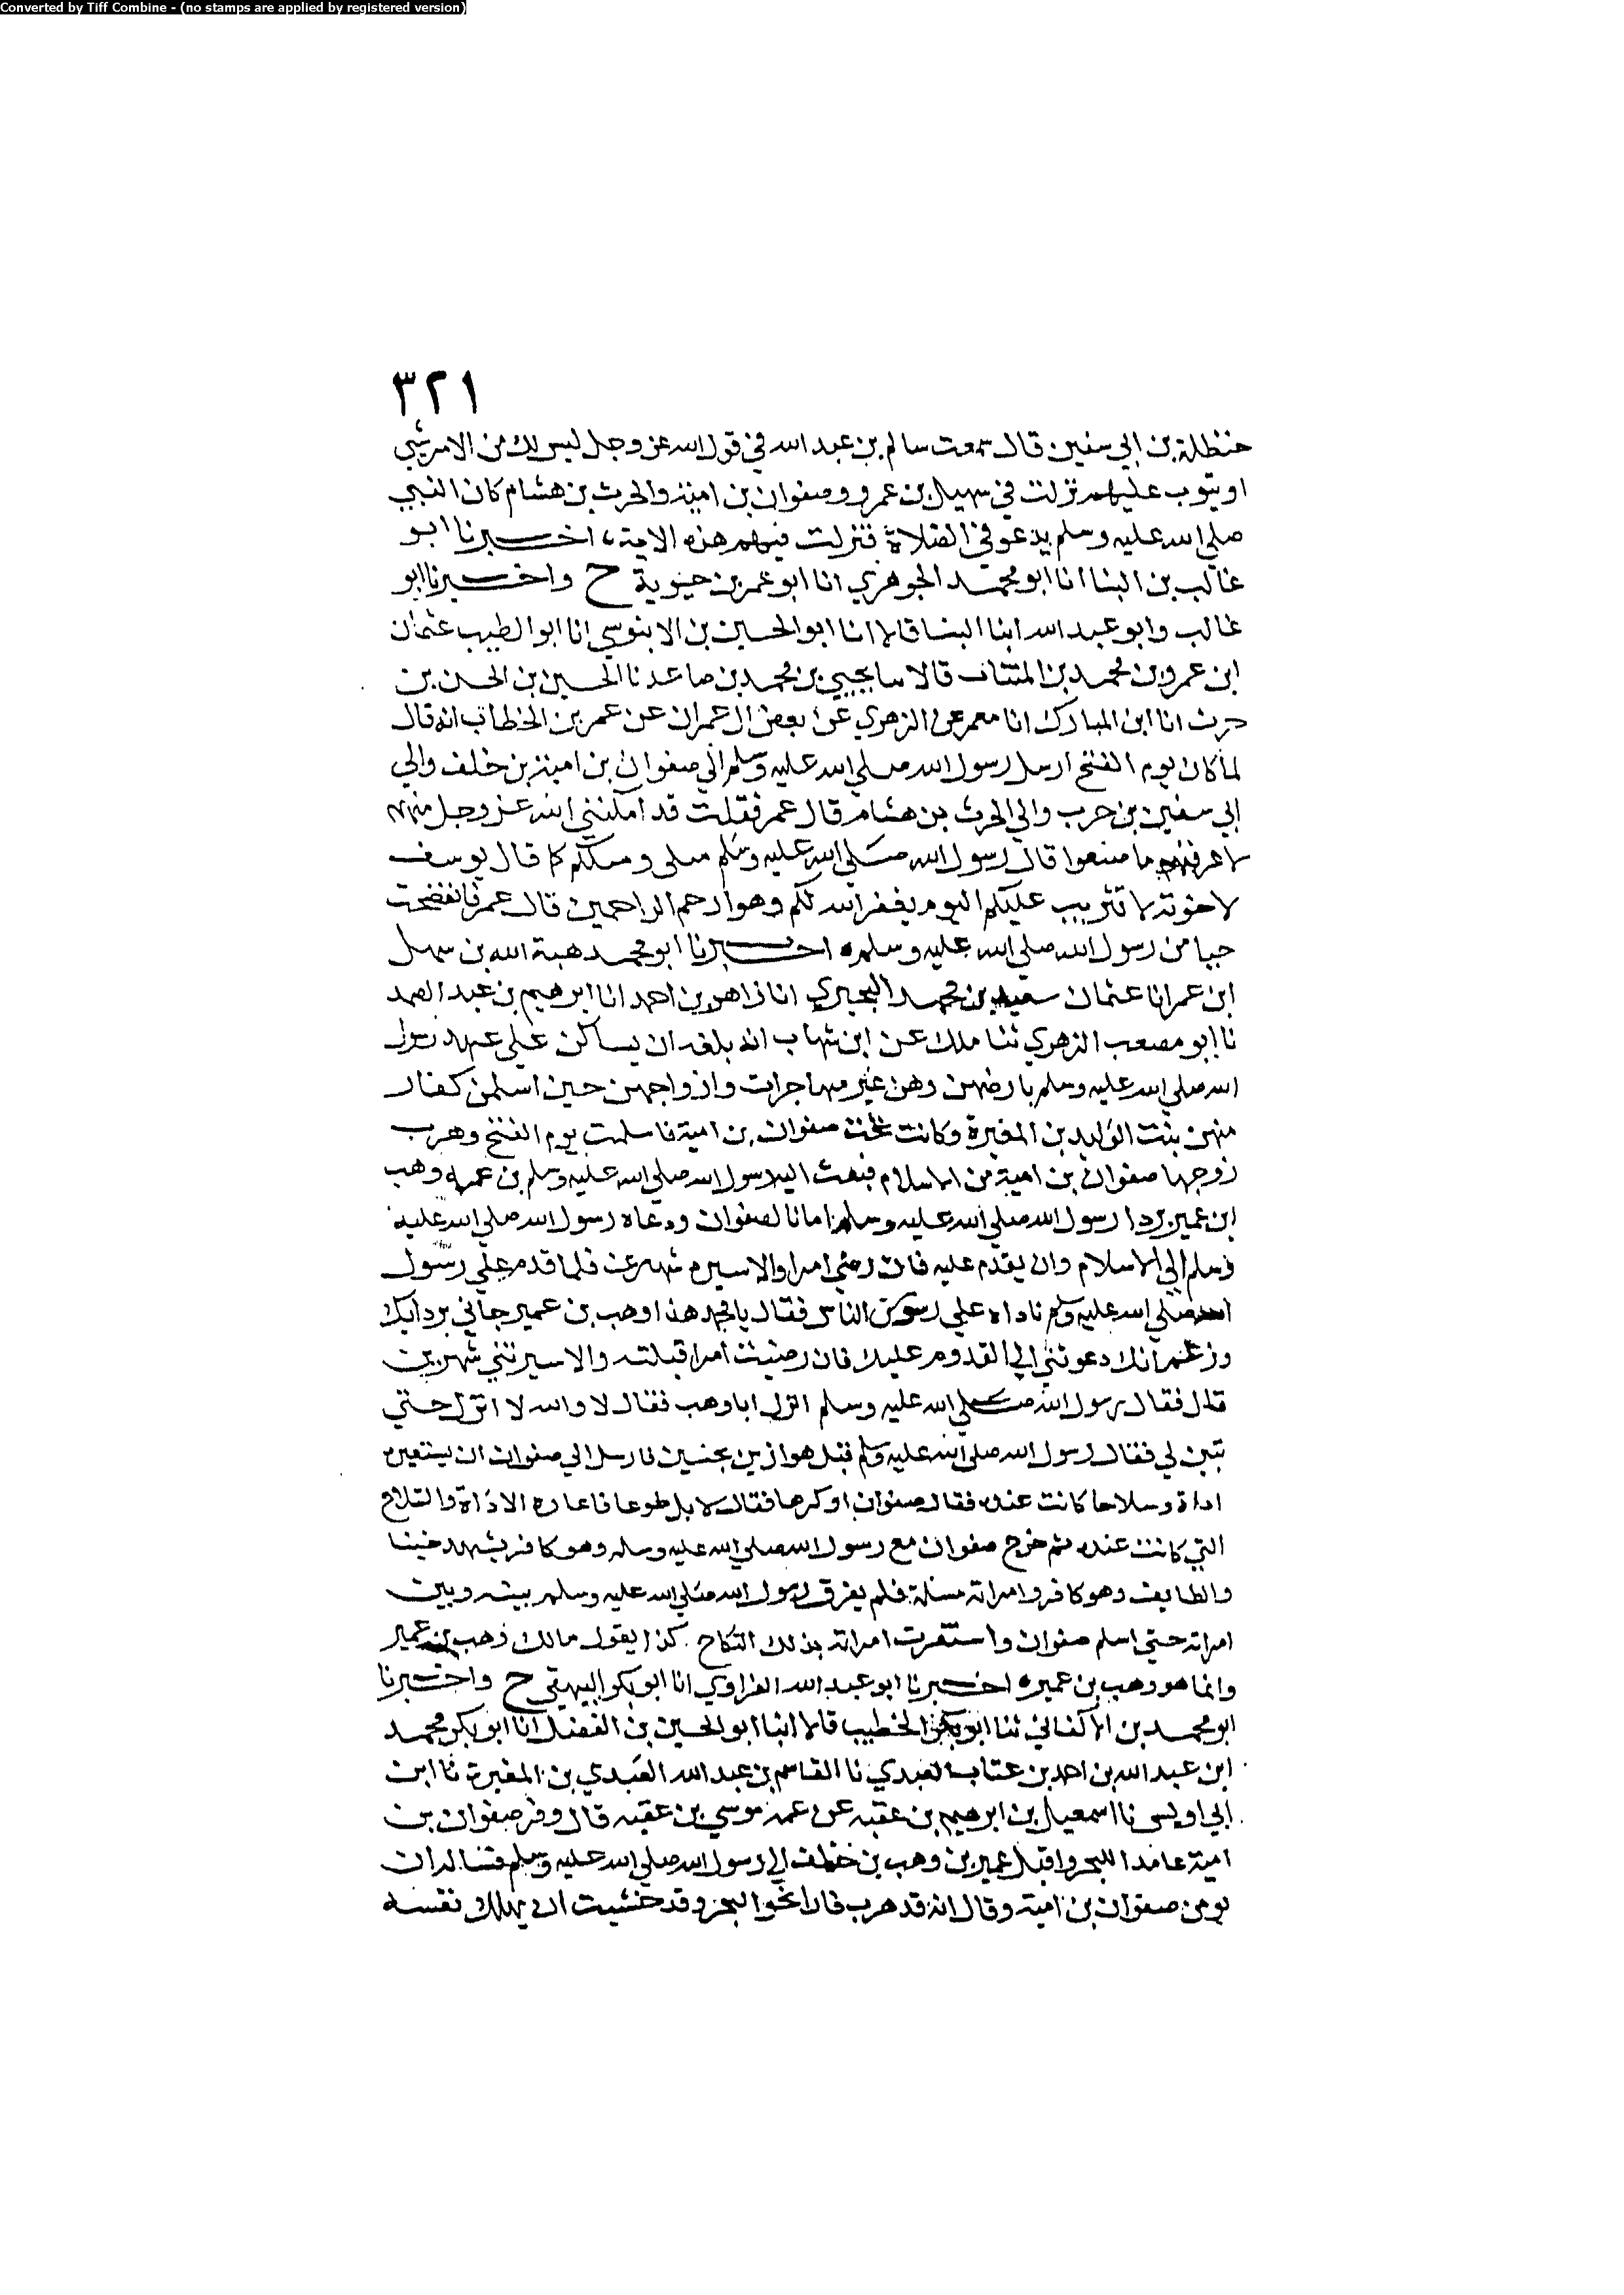 Converted by Tiff Combine - (no stamps are applied by registered version)
٣٢١
حنظلة بن ابي سفين قال سمعت سالم بن عبد الله في قول الله عز وجل ليس لك من الامر شي
او يتوب عليهم نزلت في سهيل بن عمرو وصفوان بن امية والحرث بن هشام كان النبي
صلي الله عليه وسلم يدعو في الصلاة فنزلت فيهم هذه الاية، اخبرنا ابو
غالب بن البنا انا ابو محمد الجوهري انا ابو عمر بن حيوية ح واخبرنا ابو
غالب وابو عبد الله ابنا البنا قالا انا ابو الحسين بن الابنوسي انا ابو الطيب عثمان
ابن عمرو بن محمد بن المنتاب قالا سا يحيي بن محمد بن صاعد نا الحسين بن الحسن بن
حرث انا ابن المبارك انا معمر عن الزهري عن بعض ال عمران عن عمر بن الخطاب انه قال
لما كان يوم الفتح ارسل رسول الله صلي الله عليه وسلم الي صفوان بن امية بن خلف والي
ابي سفين بن حرب والي الحرث بن هشام قال عمر فقلت قد امكنني الله عز وجل منهم
لاعرفنهم ما صنعوا قال رسول الله صلي الله عليه وسلم مثلي ومثلكم كما قال يوسف
لاخوته لا تثريب عليكم اليوم يغفر الله لكم وهو ارحم الراحمين قال عمر فانفضحت
حيا من رسول الله صلي الله عليه وسلم ه اخبرنا ابو محمد هبة الله بن سهل
ابن عمر انا عثمان سعيد بن محمد البحيري انا زاهر بن احمد انا ابرهيم بن عبد الصمد
نا ابو مصعب الزهري ثنا ملك عن ابن شهاب انه بلغه ان نساكن علي عهد رسول
الله صلي الله عليه وسلم بارضهن وهن غير مهاجرات وازواجهن حين اسلمن كفار
منهن بنت الوليد بن المغيرة وكانت تحت صفوان بن امية فاسلمت يوم الفتح وهرب
زوجها صفوان بن امية من الاسلام فبعث اليه رسول الله صلي الله عليه وسلم بن عمه وهب
ابن عمير بردا رسول الله صلي الله عليه وسلم امانا لصفوان ودعاه رسول الله صلي الله عليه
وسلم الي الاسلام وان يقدم عليه فان رضي امرا والا سيره شهرين فلما قدم علي رسول
الله صلي الله عليه وسلم ناداه علي رسوس الناس فقال يا محمد هذا وهب بن عمير جاني بردايك
وزعم انك دعوتني الي القدوم عليك فان رضيت امرا قبلته والا سيرتني شهرين
قال فقال رسول الله صلي الله عليه وسلم انزل ابا وهب فقال لا والله لا انزل حتي
تبين لي فقال رسول الله صلي الله عليه وسلم قبل هوازين بحنين فارسل الي صفوان ان يستعيره
اداة وسلاحا كانت عنده فقال صفوان او كرها فقال لا بل طوعا فاعاره الاداة والسلاح
التي كانت عنده ثم خرج صفوان مع رسول الله صلي الله عليه وسلم وهو كافر يشهد حنينا
والطايف وهو كافر وامراته مسلمة فلم يفرق رسول الله صلي الله عليه وسلم بينه وبين
امراته حتي اسلم صفوان واستقرت امراته بذلك النكاح. كذا يقول مالك وهب بن عمير
وانما هو وهب بن عميره اخبرنا ابو عبد الله الفراوي انا ابو بكر البيهقي ح واخبرنا
ابو محمد بن الاكفاني ثنا ابو بكر الخطيب قالا انبا ابو الحسين بن الفضل انا ابو بكر محمد
ابن عبد الله بن احمد بن عتاب العبدي نا القاسم بن عبد الله العبدي بن المغيرة نا ابن
ابي اويس نا اسمعيل بن ابرهيم بن عقبه عن عمه موسي بن عقبه قال وفر صفوان بن
امية عامدا للبحر واقبل عمير بن وهب بن خلف الي رسول الله صلي الله عليه وسلم فسالہ ان
يومن صفوان بن امية وقال انه قد هرب فارا نحو البحر وقد خشيت ان يهلك نفسه